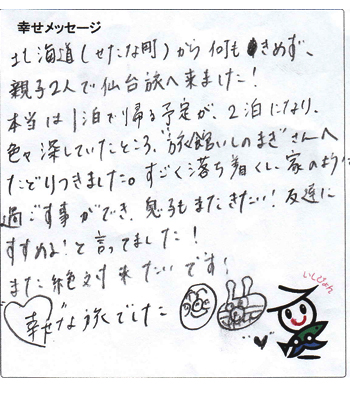 幸せメッセージ
北海道(せたな町)から何もきめず、
親子2人で仙台旅へ来ました!
本当は1泊で帰る予定が、2泊になり、
色々深していたところ、"旅館いしのまき"さんへ
たどりつきました。すごく落ち着くし、家のように
過ごす事ができ、息子もまたきたい!友達に
すすめる!と言ってました!
また絶対来たいです!
幸せな旅でした
いしぴょん